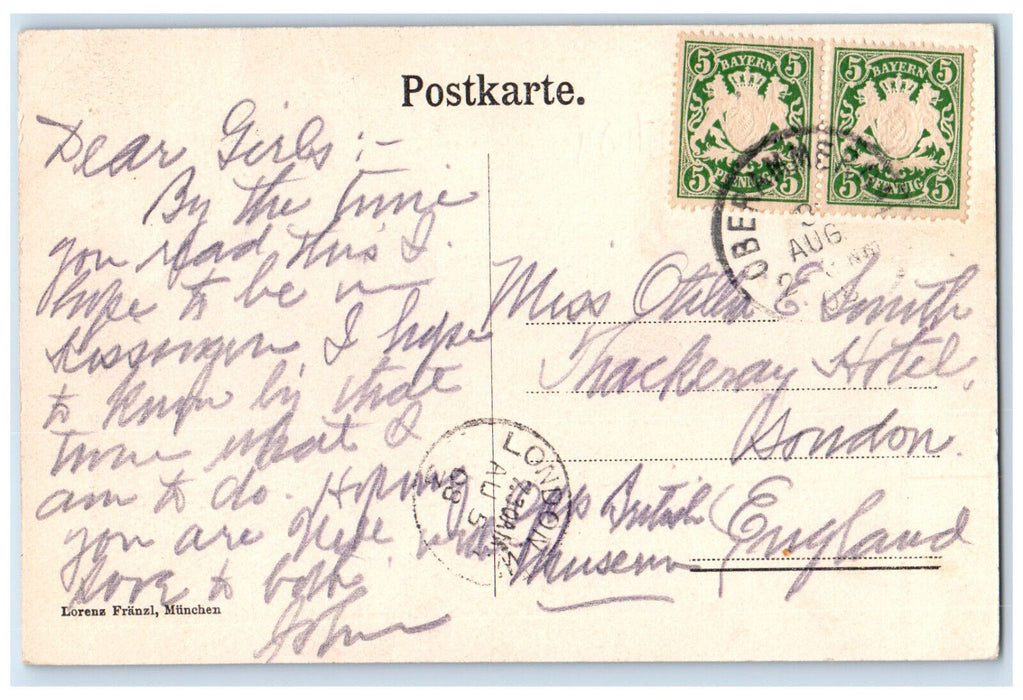 Postkarte.
5 BAYERN 5
5 PFENNIG 5
5 BAYERN 5
5 PFENNIG 5
AUG
Dear Girls :-
By the time
you read this I
hope to be in
I hope
to know by that
time what I
am to do. Hoping
you are well with
love to both
John
Miss E Smith
Thackeray Hotel,
London.
Opp British
Museum
England
LONDON
7.30AM
AU 5
08
Lorenz Fränzl, München